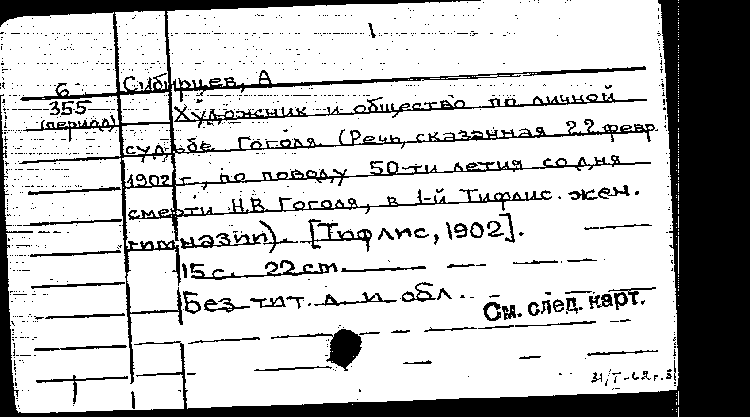 1
Сибирцев, А
6
355
(период)
Художник и общество по личной
судьбе Гоголя. (Речь, сказанная 22 февр
1902 г., по поводу 50-ти летия со дня
смерти Н.В. Гоголя, в 1-й Тифлис. жен.
гимназии). [Тифлис, 1902].
15 с. 22 cm.
Без тит. л. и обл.
См. след. карт.
31/I-62 г. З